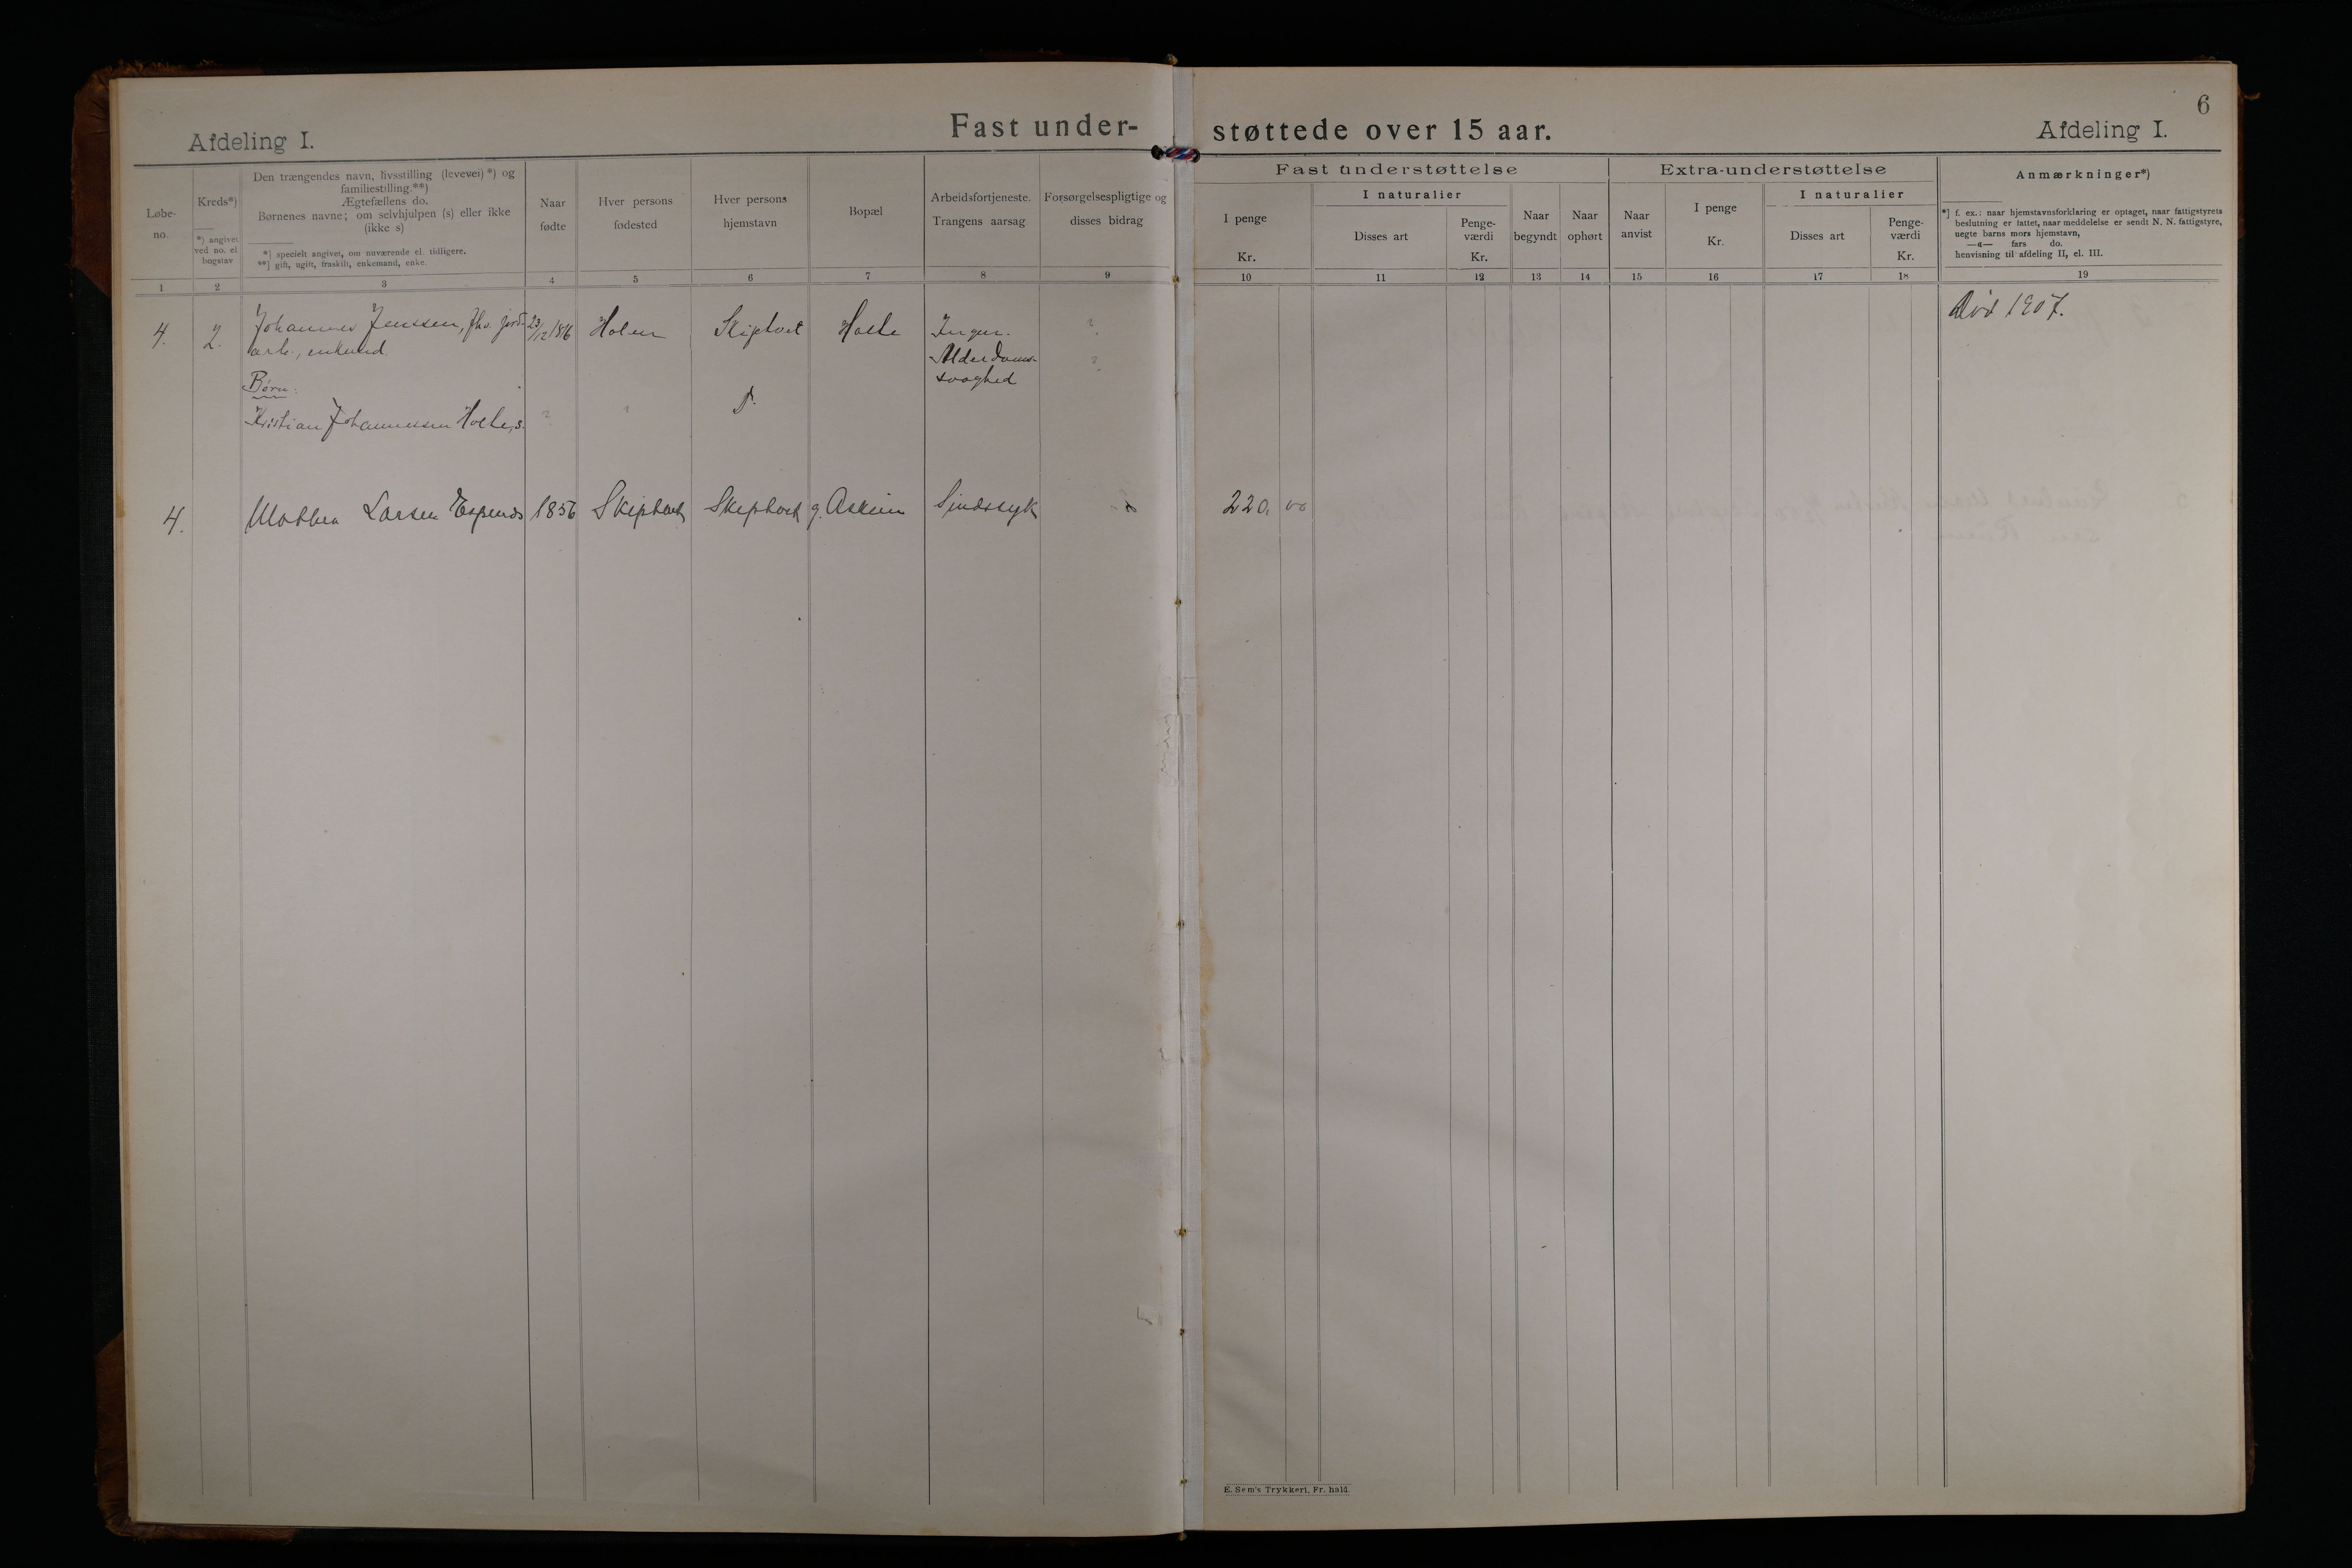 6
Afdeling I.
Fast under-støttede over 15 aar.
Afdeling I.
Løbe-
no.
Kreds*)
*) angivet
ved no. el
bogstav
Den trængendes navn, livsstilling (levevei)*) og
familiestilling.**)
Ægtefællens do.
Børnenes navne; om selvhjulpen (s) eller ikke
(ikke s)
*] specielt angivet, om nuværende el. tidligere.
**] gift, ugift, fraskilt, enkemand, enke.
Naar
fødte
Hver persons
fødested
Hver persons
hjemstavn
Bopæl
Arbeidsfortjeneste.
Trangens aarsag
Forsørgelsespligtige og
disses bidrag
Fast understøttelse
I penge
Kr.
I naturalier
Disses art
Penge-
værdi
Kr.
Naar
begyndt
Naar
ophørt
Extra-understøttelse
Naar
anvist
I penge
Kr.
I naturalier
Disses art
Penge-
værdi
Kr.
Anmærkninger*)
*] f. ex.: naar hjemstavnsforklaring er optaget, naar fattigstyrets
beslutning er fattet, naar meddelelse er sendt N. N. fattigstyre,
uegte barns mors hjemstavn,
—«— fars do.
henvisning til afdeling II, el. III.
1 2 3 4 5 6 7 8 9 10 11 12 13 14 15 16 17 18 19
4. 2. Johannes Jenssen, fhv. jord- 23/12 1816 Holen Skiptvet Holte Ingen. ? Død 1907.
arb., enkemd.
Alderdoms- ?
svaghed
Børn:
Kristian Johannessen Holte, s. ? ?
4. Mathea Larsen Espenes 1856 Skiptvet Skiptvet g. Askim Sindssyk 220, 00
E. Sem's Trykkeri, Fr. hald.